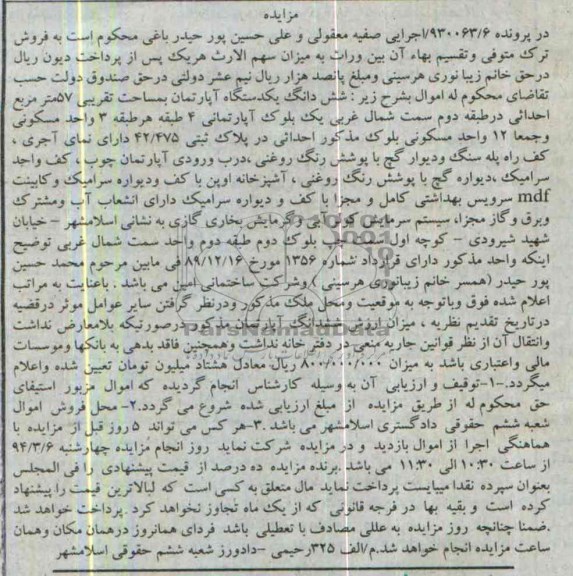 مزایده
در پرونده ۹۳۰۰۶۳/۶/اجرایی صفیه معقولی و علی حسین پور حیدر باغی محکوم است به فروش
ترک متوفی وتقسیم بهاء آن بین وراث به میزان سهم الارث هریک پس از پرداخت دیون ریال
درحق خانم زیبا نوری هرسینی ومبلغ پانصد هزار ریال نیم عشر دولتی درحق صندوق دولت حسب
تقاضای محکوم له اموال بشرح زیر : شش دانگ یکدستگاه آپارتمان بمساحت تقریبی ۵۷متر مربع
احداثی درطبقه دوم سمت شمال غربی یک بلوک آپارتمانی ۴ طبقه هرطبقه ۳ واحد مسکونی
وجمعا ۱۲ واحد مسکونی بلوک مذکور احداثی در پلاک ثبتی ۴۲/۴۷۵ دارای نمای آجری ،
کف راه پله سنگ ودیوار گچ با پوشش رنگ روغنی ،درب ورودی آپارتمان چوب ، کف واحد
سرامیک ،دیواره گچ با پوشش رنگ روغنی ، آشپزخانه اوپن با کف ودیواره سرامیک وکابینت
mdf سرویس بهداشتی کامل و مجزا با کف و دیواره سرامیک دارای انشعاب آب ومشترک
وبرق وگاز مجزا، سیستم سرمایش کولر آبی وگرمایش بخاری گازی به نشانی اسلامشهر – خیابان
شهید شیرودی – کوچه اول سمت چپ بلوک دوم طبقه دوم واحد سمت شمال غربی توضیح
اینکه واحد مذکور دارای قرارداد شماره ۱۳۵۶ مورخ ۸۹/۱۲/۱۶ فی مابین مرحوم محمد حسین
پور حیدر (همسر خانم زیبانوری هرسینی ) وشرکت ساختمانی امین می باشد . باعنایت به مراتب
اعلام شده فوق وباتوجه به موقعیت ومحل ملک مذکور ودرنظر گرفتن سایر عوامل موثر درقضیه
درتاریخ تقدیم نظریه ، میزان ارزش ششدانگ آپارتمان مذکور درصورتیکه بلامعارض نداشت
وانتقال آن از نظر قوانین جاریه منعی در دفتر خانه نداشت وهمچنین فاقد بدهی به بانکها وموسسات
مالی واعتباری باشد به میزان ۸۰۰/۰۰۰/۰۰۰ ریال معادل هشتاد میلیون تومان تعیین شده واعلام
میگردد.-۱-توقیف و ارزیابی آن به وسیله کارشناس انجام گردیده که اموال مزبور استیفای
حق محکوم له از طریق مزایده از مبلغ ارزیابی شده شروع می گردد.۲- محل فروش اموال
شعبه ششم حقوقی دادگستری اسلامشهر می باشد .۳-هر کس می تواند ۵ روز قبل از مزایده با
هماهنگی اجرا از اموال بازدید و در مزایده شرکت نماید روز انجام مزایده چهارشنبه ۹۴/۳/۶
از ساعت ۱۰:۳۰ الی ۱۱:۳۰ می باشد .برنده مزایده ده درصد از قیمت پیشنهادی را فی المجلس
بعنوان سپرده نقدا میبایست پرداخت نماید مال متعلق به کسی است که لبالاترین قیمت را پیشنهاد
کرده است و بقیه بها در فرجه قانونی که از یک ماه تجاوز نخواهد کرد .پرداخت خواهد شد
.ضمنا چنانچه روز مزایده به عللی مصادف با تعطیلی باشد فردای همانروز درهمان مکان وهمان
ساعت مزایده انجام خواهد شد.م/الف ۳۲۵رحیمی –دادورز شعبه ششم حقوقی اسلامشهر